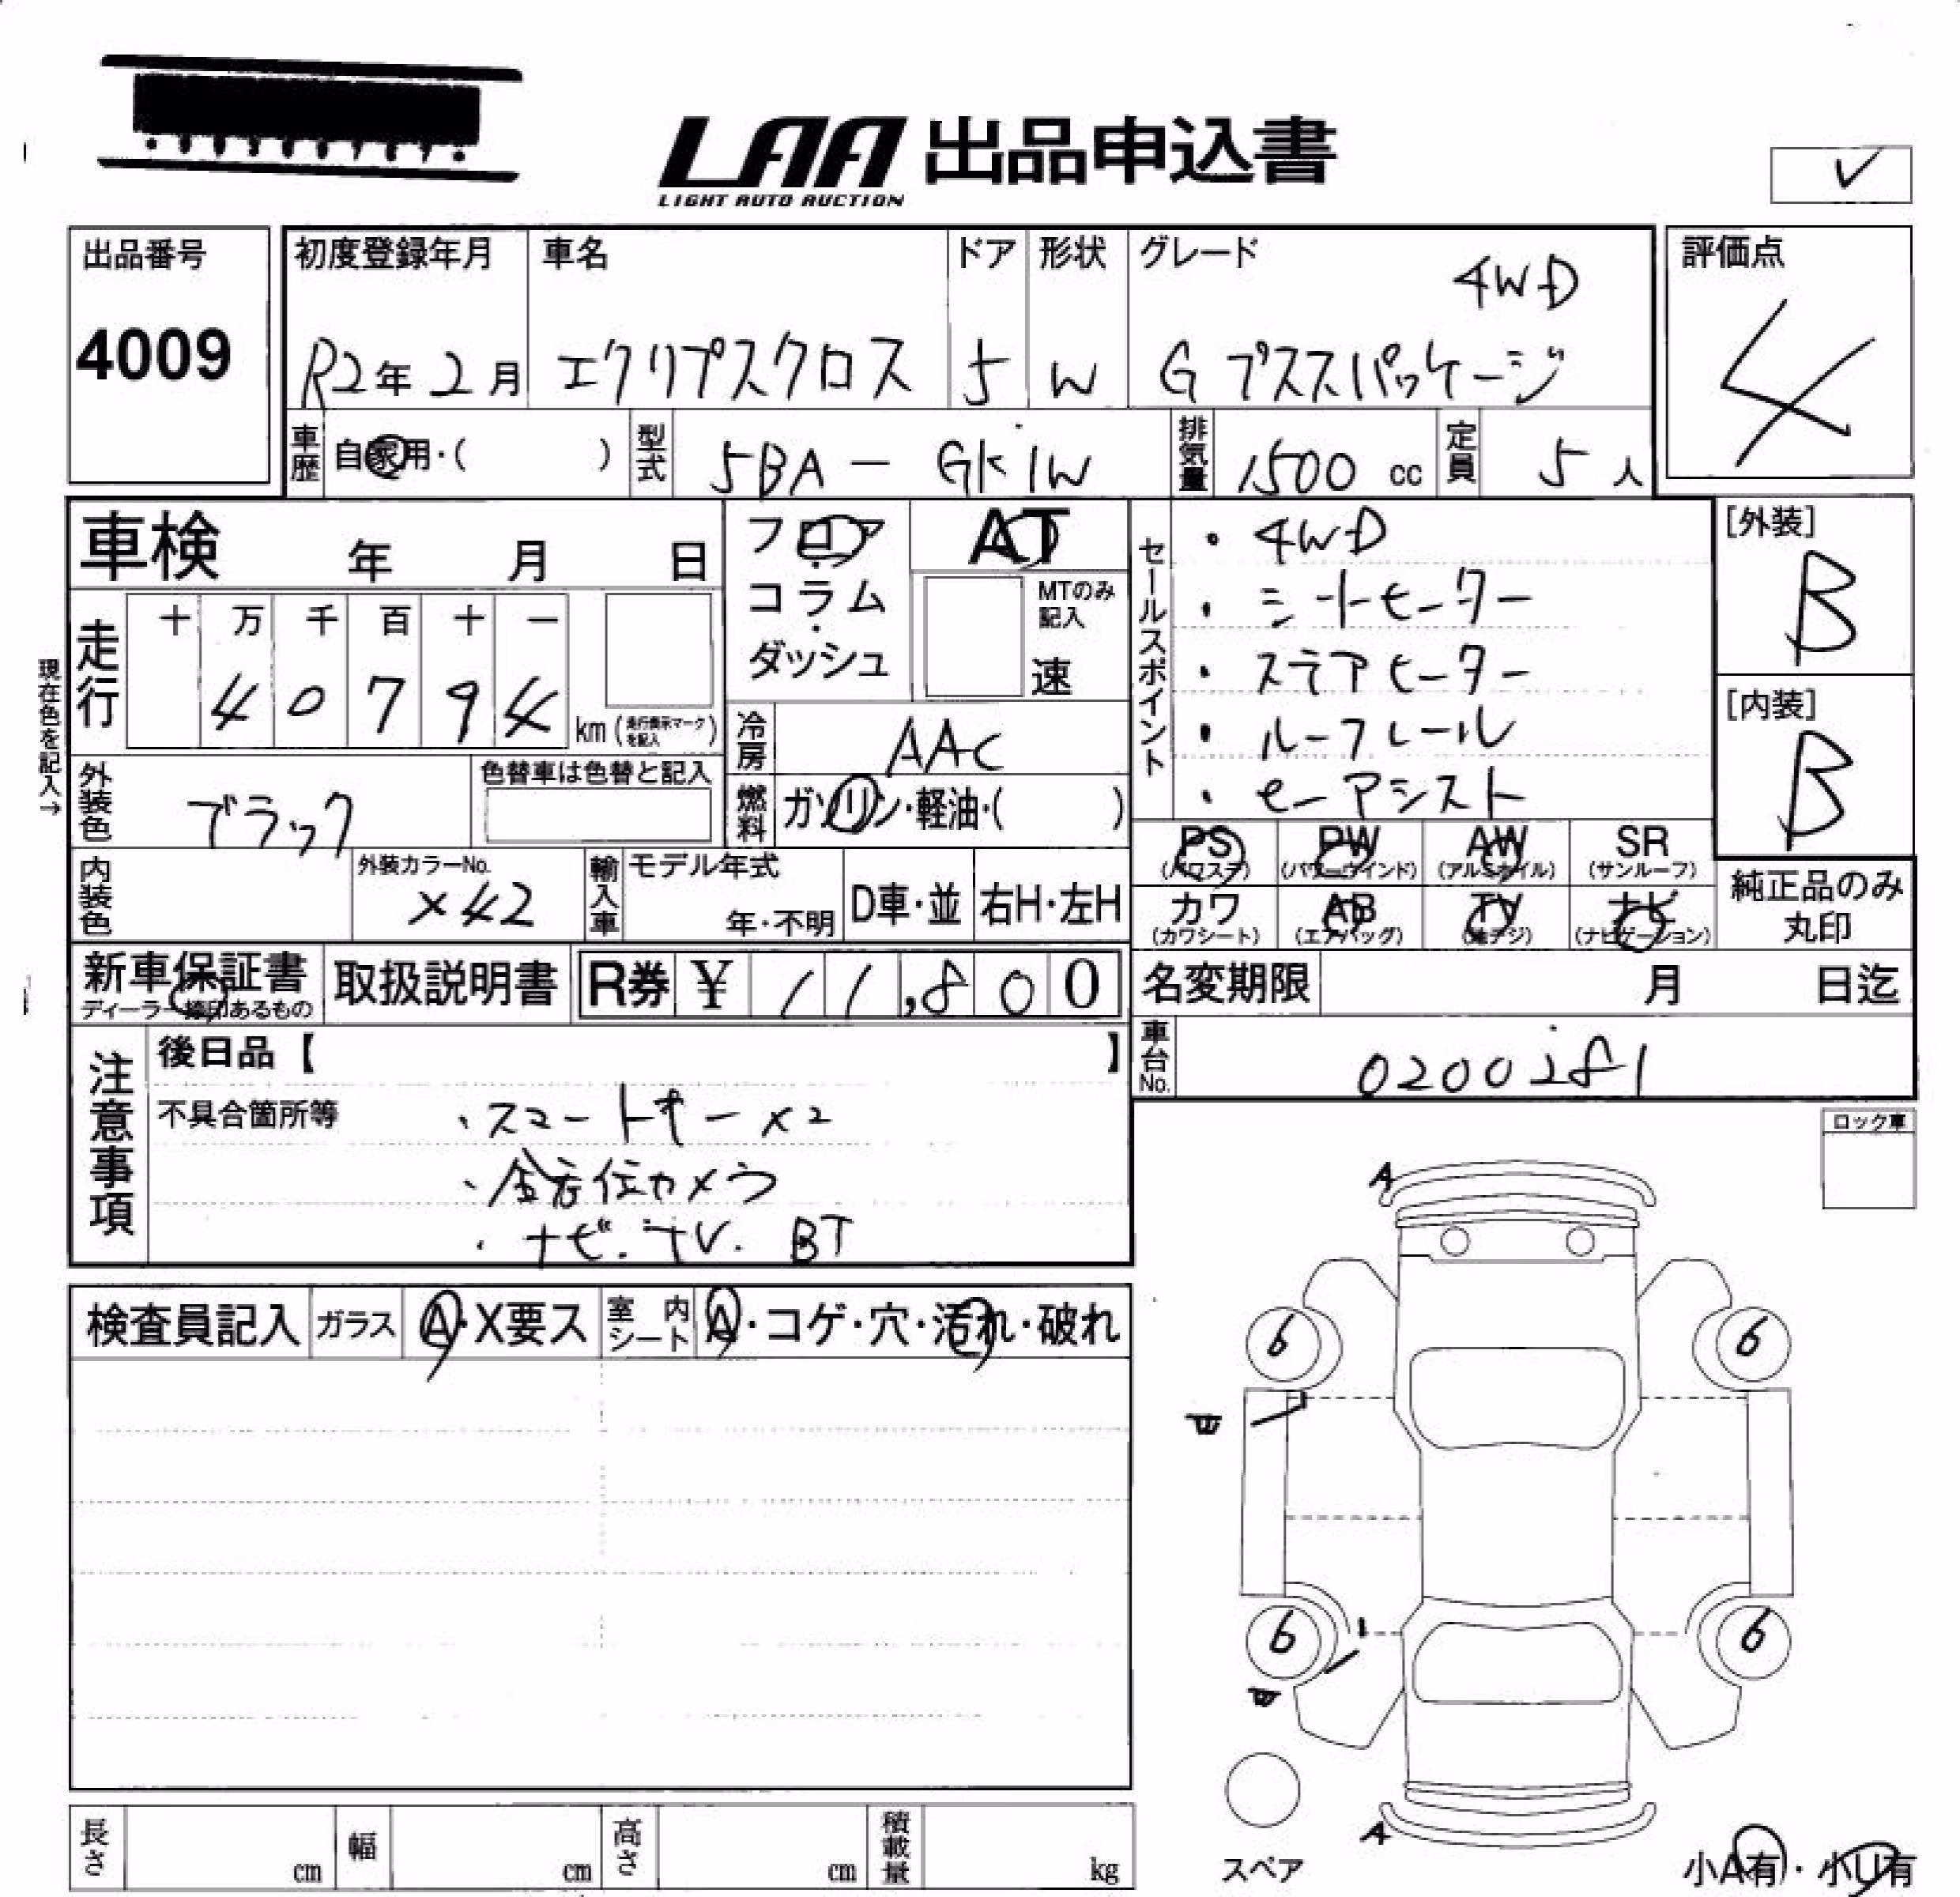 LAA 出品申込書
LIGHT AUTO AUCTION
✓
出品番号
4009
初度登録年月
R2年 2月
車名
エクリプスクロス
ドア
5
形状
W
グレード
4WD
G プススパッケージ
評価点
4
車歴
自家用・( )
型式
5BA - GK1W
排気量
1500 cc
定員
5 人
車検 年 月 日
走行
十 万 千 百 十 一
4 0 7 9 4
km (走行表示マークを記入)
現在色を記入→
外装色
ブラック
色替車は色替と記入
内装色
外装カラーNo.
X42
フロア
コラム
ダッシュ
AT
MTのみ記入
速
冷房
AAC
燃料
ガソリン・軽油・( )
輸入車
モデル年式
年・不明
D車・並
右H・左H
セールスポイント
・4WD
・シートヒーター
・ステアヒーター
・ルーフレール
・e-アシスト
[外装]
B
[内装]
B
PS (パワステ)
PW (パワーウインド)
AW (アルミホイル)
SR (サンルーフ)
カワ (カワシート)
AB (エアバッグ)
TV (地デジ)
ナビ (ナビゲーション)
純正品のみ
丸印
新車保証書
ディーラー捺印あるもの
取扱説明書
R券 ¥ 11,800
名変期限 月 日迄
車台No.
注意事項
後日品【 】
不具合箇所等
・スマートキー×2
・全方位カメラ
・ナビ.TV. BT
検査員記入
ガラス
A・X要ス
室内シート
A・コゲ・穴・汚れ・破れ
ロック車
A
6
6
6
6
A
スペア
小A有・小U有
長さ cm
幅 cm
高さ cm
積載量 kg